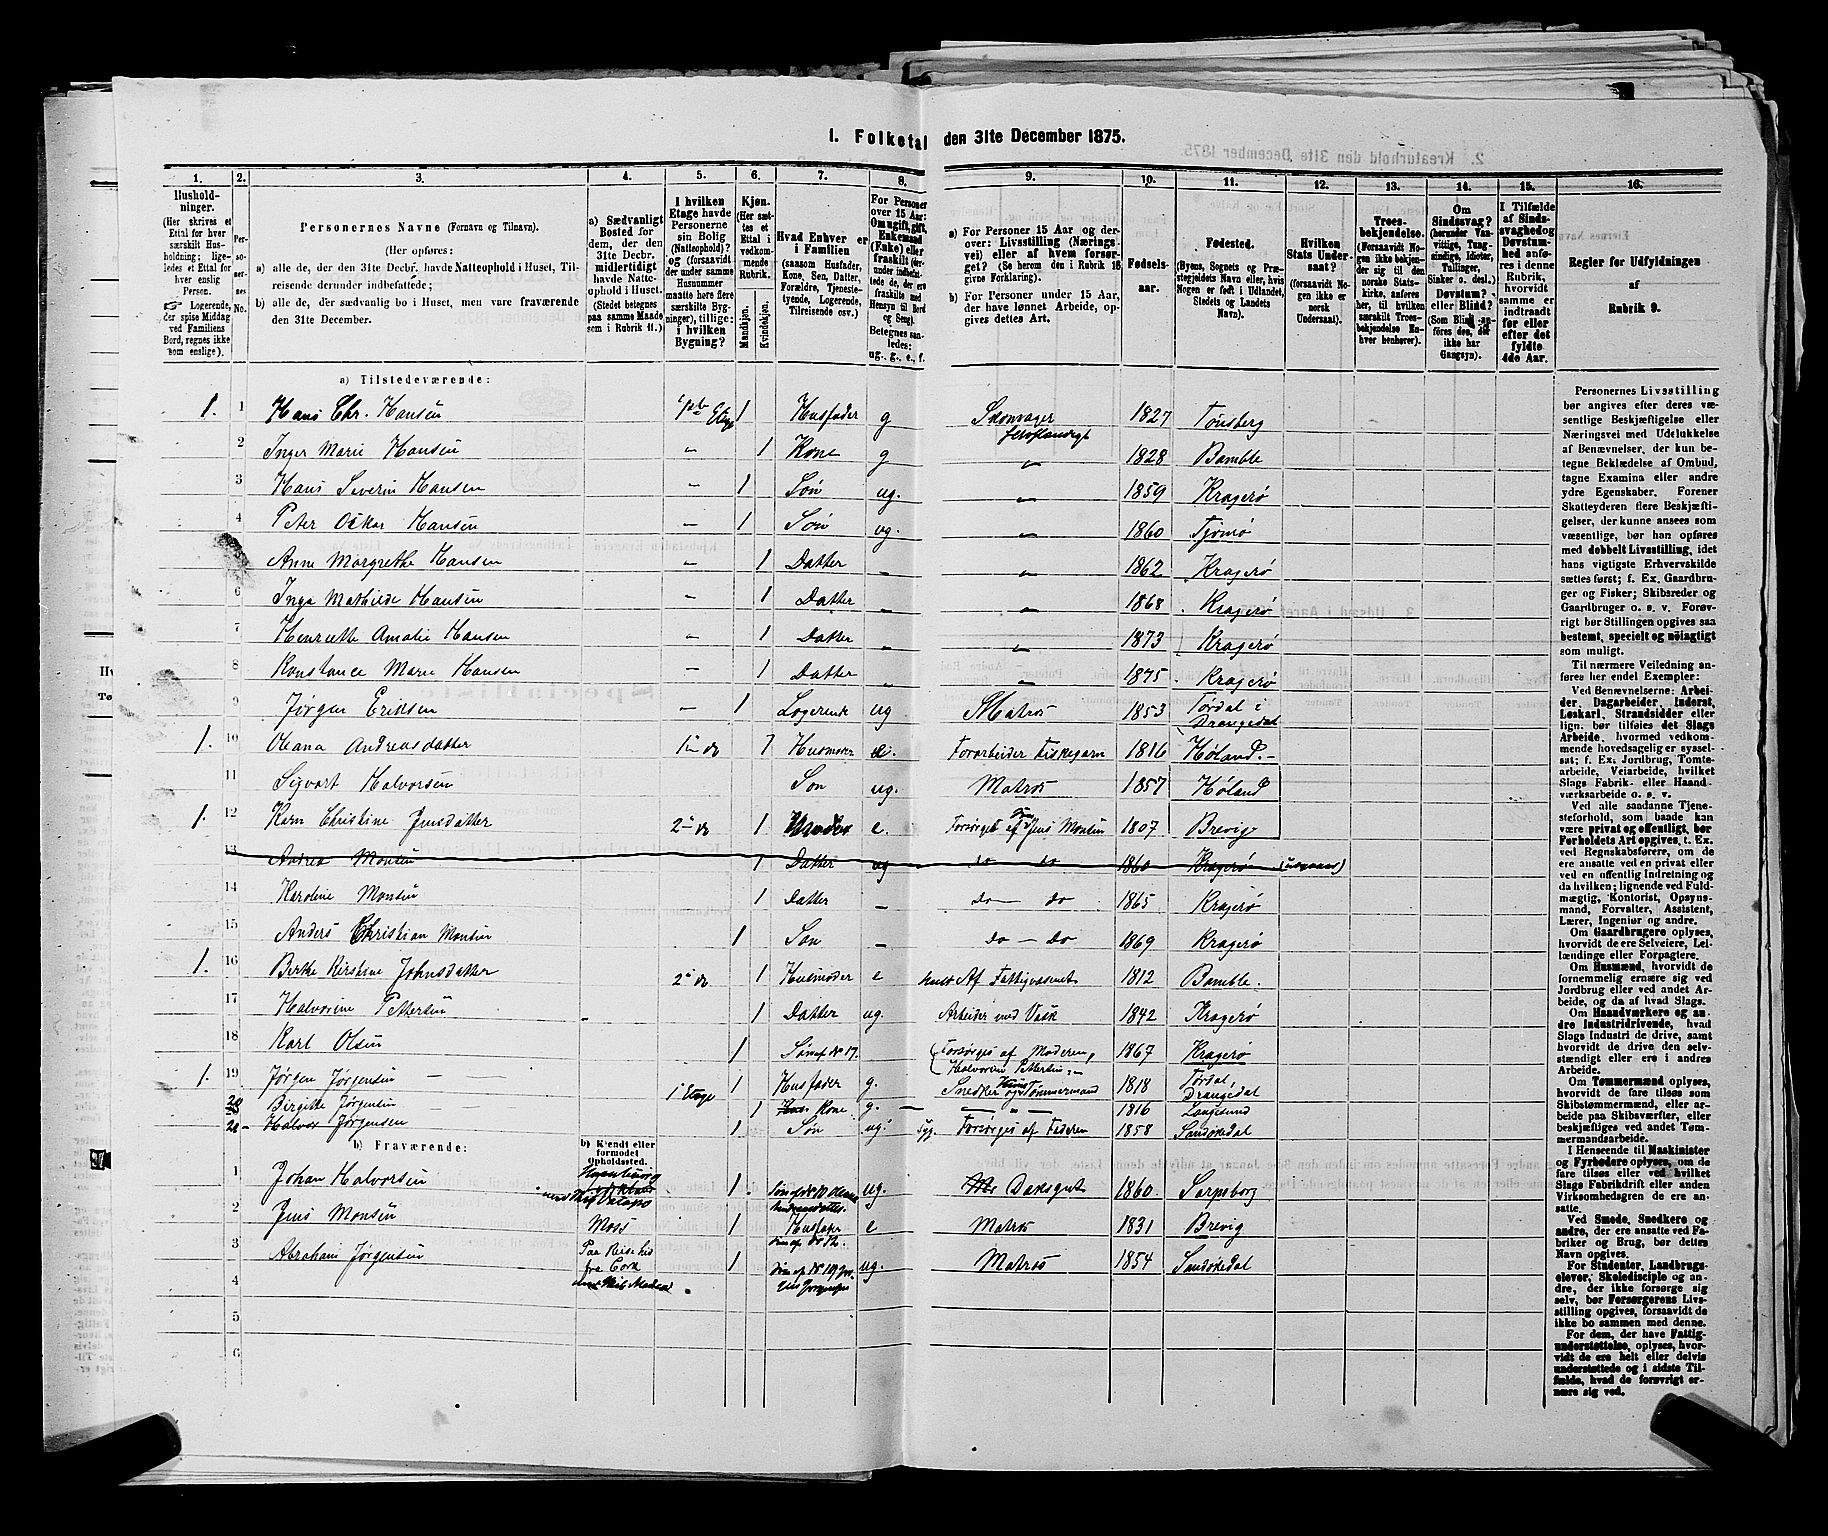 I. Folketal den 31te December 1875.
2. Kreaturhold den 31te December 1875.
1. 2. 3. 4. 5. 6. 7. 8. 9. 10. 11. 12. 13. 14. 15. 16.
Husholdninger.
(Her skrives et
Ettal for hver
særskilt Husholdning;
ligeledes et Ettal for
hver enslig
Person.
☞ Logerende,
der spise Middag
ved Familiens
Bord, regnes ikke
som enslige).
Personernes No.
Personernes Navne (Fornavn og Tilnavn).
(Her opføres:
a) alle de, der den 31te Decbr. havde Natteophold i Huset, Tilreisende
derunder indbefattede;
b) alle de, der sædvanlig bo i Huset, men vare fraværende
den 31te December.
a) Sædvanligt
Bosted for
dem, der den
31te Decbr.
midlertidigt
havde Natteophold
i Huset.
(Stedet betegnes
paa samme Maade
som i Rubrik 11.)
I hvilken
Etage havde
Personerne
sin Bolig
(Natteophold)?
og (forsaavidt
der under samme
Husnummer
maatte høre flere
særskilte Bygninger),
tillige:
i hvilken
Bygning?
Kjøn.
(Her sættes
et
Ettal i
vedkommende
Rubrik.
Mandkjøn.
Kvindekjøn.
Hvad Enhver er
i Familien
(saasom Husfader,
Kone, Søn, Datter,
Forældre, Tjenestetyende,
Logerende,
Tilreisende osv.)
For Personer
over 15 Aar:
Om ugift, gift,
Enkemand
(Enke) eller
fraskilt
Betegnes saaledes:
ug., g., e., f.
a) For Personer 15 Aar og derover:
Livsstilling (Næringsvei)
eller af hvem forsørget?
(Se herom den i Rubrik 16
givne Forklaring).
b) For Personer under 15 Aar,
der have lønnet Arbeide, opgives
dettes Art.
Fødselsaar.
Fødested.
(Byens, Sognets og Præstegjeldets
Navn eller, hvis
Nogen er født i Udlandet,
Stedets og Landets
Navn).
Hvilken
Stats Undersaat?
(forsaavidt
Nogen ikke er
norsk
Undersaat).
Troesbekjendelse.
(Forsaavidt Nogen
ikke bekjender
sig til den
norske Statskirke,
anføres
her, til hvilken
særskilt Troesbekjendelse
Enhver
henhører).
Om
Sindssvag?
(herunder Vanvittige,
Tungsindige,
Idioter,
Tullinger,
Sinker o. desl.)
Døvstum?
eller Blind?
(Som Blind anføres
den, der
ikke har
Gangsyn).
I Tilfælde
af Sindssvaghed
og
Døvstumhed
anføres
i denne
Rubrik,
hvorvidt
samme er
indtraadt
før eller
efter det
fyldte
4de Aar.
Regler for Udfyldningen
af
Rubrik 9.
a) Tilstedeværende:
1. 1 Hans Chr. Hansen 1ste Etage 1 Husfader g Skonvager 1827 Tønsberg
2 Inger Marie Hansen „ 1 Kone g „ 1828 Bamble
3 Hans Severin Hansen „ 1 Søn ug. „ 1859 Kragerø
4 Peter Oskar Hansen „ 1 Søn ug. „ 1860 Tjømø
Anne Margrethe Hansen „ 1 Datter „ „ 1862 Kragerø
6 Inga Mathilde Hansen „ 1 Datter „ „ 1868 Kragerø
7 Henriette Amalie Hansen „ 1 Datter „ „ 1873 Kragerø
8 Konstance Marie Hansen „ 1 Datter „ „ 1875 Kragerø
9 Jørgen Eriksen „ 1 Logerende ug Matros 1853 Tørdal i Drangedal
1. 10 Hana Andreasdatter 1 do 1 Husmoder e. Forarbeider Fiskegarn 1816 Høland
11 Sigvart Halvorsen Søn ug. Matros 1857 Høland
1. 12 Karn Christine Jensdatter 2 do 1 Husmoder e. Forsørges af Jens Monsen 1807 Brevig
13 Andrea Monsen 1 Datter ug do do 1860 Kragerø
14 Karoline Monsen 1 Datter — do — do 1865 Kragerø
15 Anders Christian Monsen 1 Søn — do — do 1869 Kragerø
1. 16 Berthe Kirstine Johnsdatter 2 do 1 Husmoder e Af Fattigvæsenet 1812 Bamble.
17 Halvorine Pettersen 1 Datter ug. Arbeider med Vask 1842 Kragerø
18 Karl Olsen 1 Søn af No 17. (Forsørges af Moderen, Halvorine Pettersen 1867 Kragerø
1. 19 Jørgen Jørgensen 1 Etage 1 Husfader g. Snedker og Tømmermand 1818 Tørdal, Drangedal
20 Birgitte Jørgensen 1 Kone g. — „ — 1816 Langesund
Halvor Jørgensen 1. Søn ug. Forsørges af Faderen 1858 Sandøkedal
b) Fraværende:
b) Kjendt eller
formodet
Opholdssted.
1 Johan Halvorsen 1. Søn af No 10 Hana Andreasdatter ug. Dæksgut 1860 Sarpsborg
2 Jens Monsen Moss 1 Husfader Søn af No 12. e Matros 1831 Brevig
3 Abraham Jørgensen Paa Reise his fra Cork 1 Søn af No 19 Jørgen Jørgensen ug. Matros 1854 Sandøkedal
4
5
6
Personernes Livsstilling
bør angives efter deres væsentlige
Beskjæftigelse eller
Næringsvei med Udelukkelse
af Benævnelser, der kun betegne
Beklædelse af Ombud,
tagne Examina eller andre
ydre Egenskaber. Forener
Skatteyderen flere Beskjæftigelser,
der kunne ansees som
væsentlige, bør han opføres
med dobbelt Livsstilling, idet
hans vigtigste Erhvervskilde
sættes først; f. Ex. Gaardbruger
og Fisker; Skibsreder og
Gaardbruger o. s. v. Forøvrigt
bør Stillingen opgives saa
bestemt, specielt og nøiagtigt
som muligt.
Til nærmere Veiledning anføres
her endel Exempler:
Ved Benævnelserne: Arbeider,
Dagarbeider, Inderst,
Løskarl, Strandsidder eller
lign. bør tilføies det Slags
Arbeide, hvormed vedkommende
hovedsagelig er sysselsat;
f. Ex. Jordbrug, Tomtearbeide,
Veiarbeide, hvilket
Slags Fabrik- eller Haandværksarbeide
o. s. v.
Ved alle saadanne Tjenesteforhold,
som baade kan
være privat og offentligt, bør
Forholdets Art opgives, t. Ex.
ved Regnskabsførere, om de
ere ansatte ved en privat eller
ved en offentlig Indretning og
da hvilken; lignende ved Fuldmægtig,
Kontorist, Opsynsmand,
Forvalter, Assistent,
Lærer, Ingeniør og andre.
Om Gaardbrugere oplyses,
hvorvidt de ere Selveiere, Leilændinge
eller Forpagtere.
Om Husmænd, hvorvidt de
fornemmelig ernære sig ved
Jordbrug eller ved andet Arbeide,
og da af hvad Slags.
Om Haandværkere og andre
Industridrivende, hvad
Slags Industri de drive, samt
hvorvidt de drive den selvstændigt
eller ere i andres
Arbeide.
Om Tømmermænd oplyses,
hvorvidt de fare tilsøs som
Skibstømmermænd, eller arbeide
paa Skibsværfter, eller
beskjæftiges ved andet Tømmermandsarbeide.
I Henseende til Maskinister
og Fyrbødere oplyses, om de
fare tilsøs eller ved hvilket
Slags Fabrikdrift eller anden
Virksomhedsgren de ere ansatte.
Ved Smede, Snedkere og
andre, der ere ansatte ved Fabriker
og Brug, bør dettes
Navn opgives.
For Studenter, Landbrugselever,
Skoledisciple og andre,
der ikke forsørge sig
selv, bør Forsørgerens Livsstilling
opgives, forsaavidt de
ikke bo sammen med denne.
For dem, der have Fattigunderstøttelse,
oplyses, hvorvidt
de ere helt eller delvis
understøttede og i sidste Tilfælde,
hvad de forøvrigt ernære
sig ved.